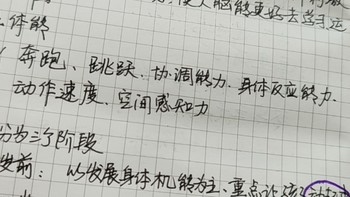 使人脑能更好去学习运
体能
奔跑、跳跃、协调能力、身体反应能力、
动作速度、空间感知力
分为三个阶段
发前：以发展身体机能为主、重点让孩